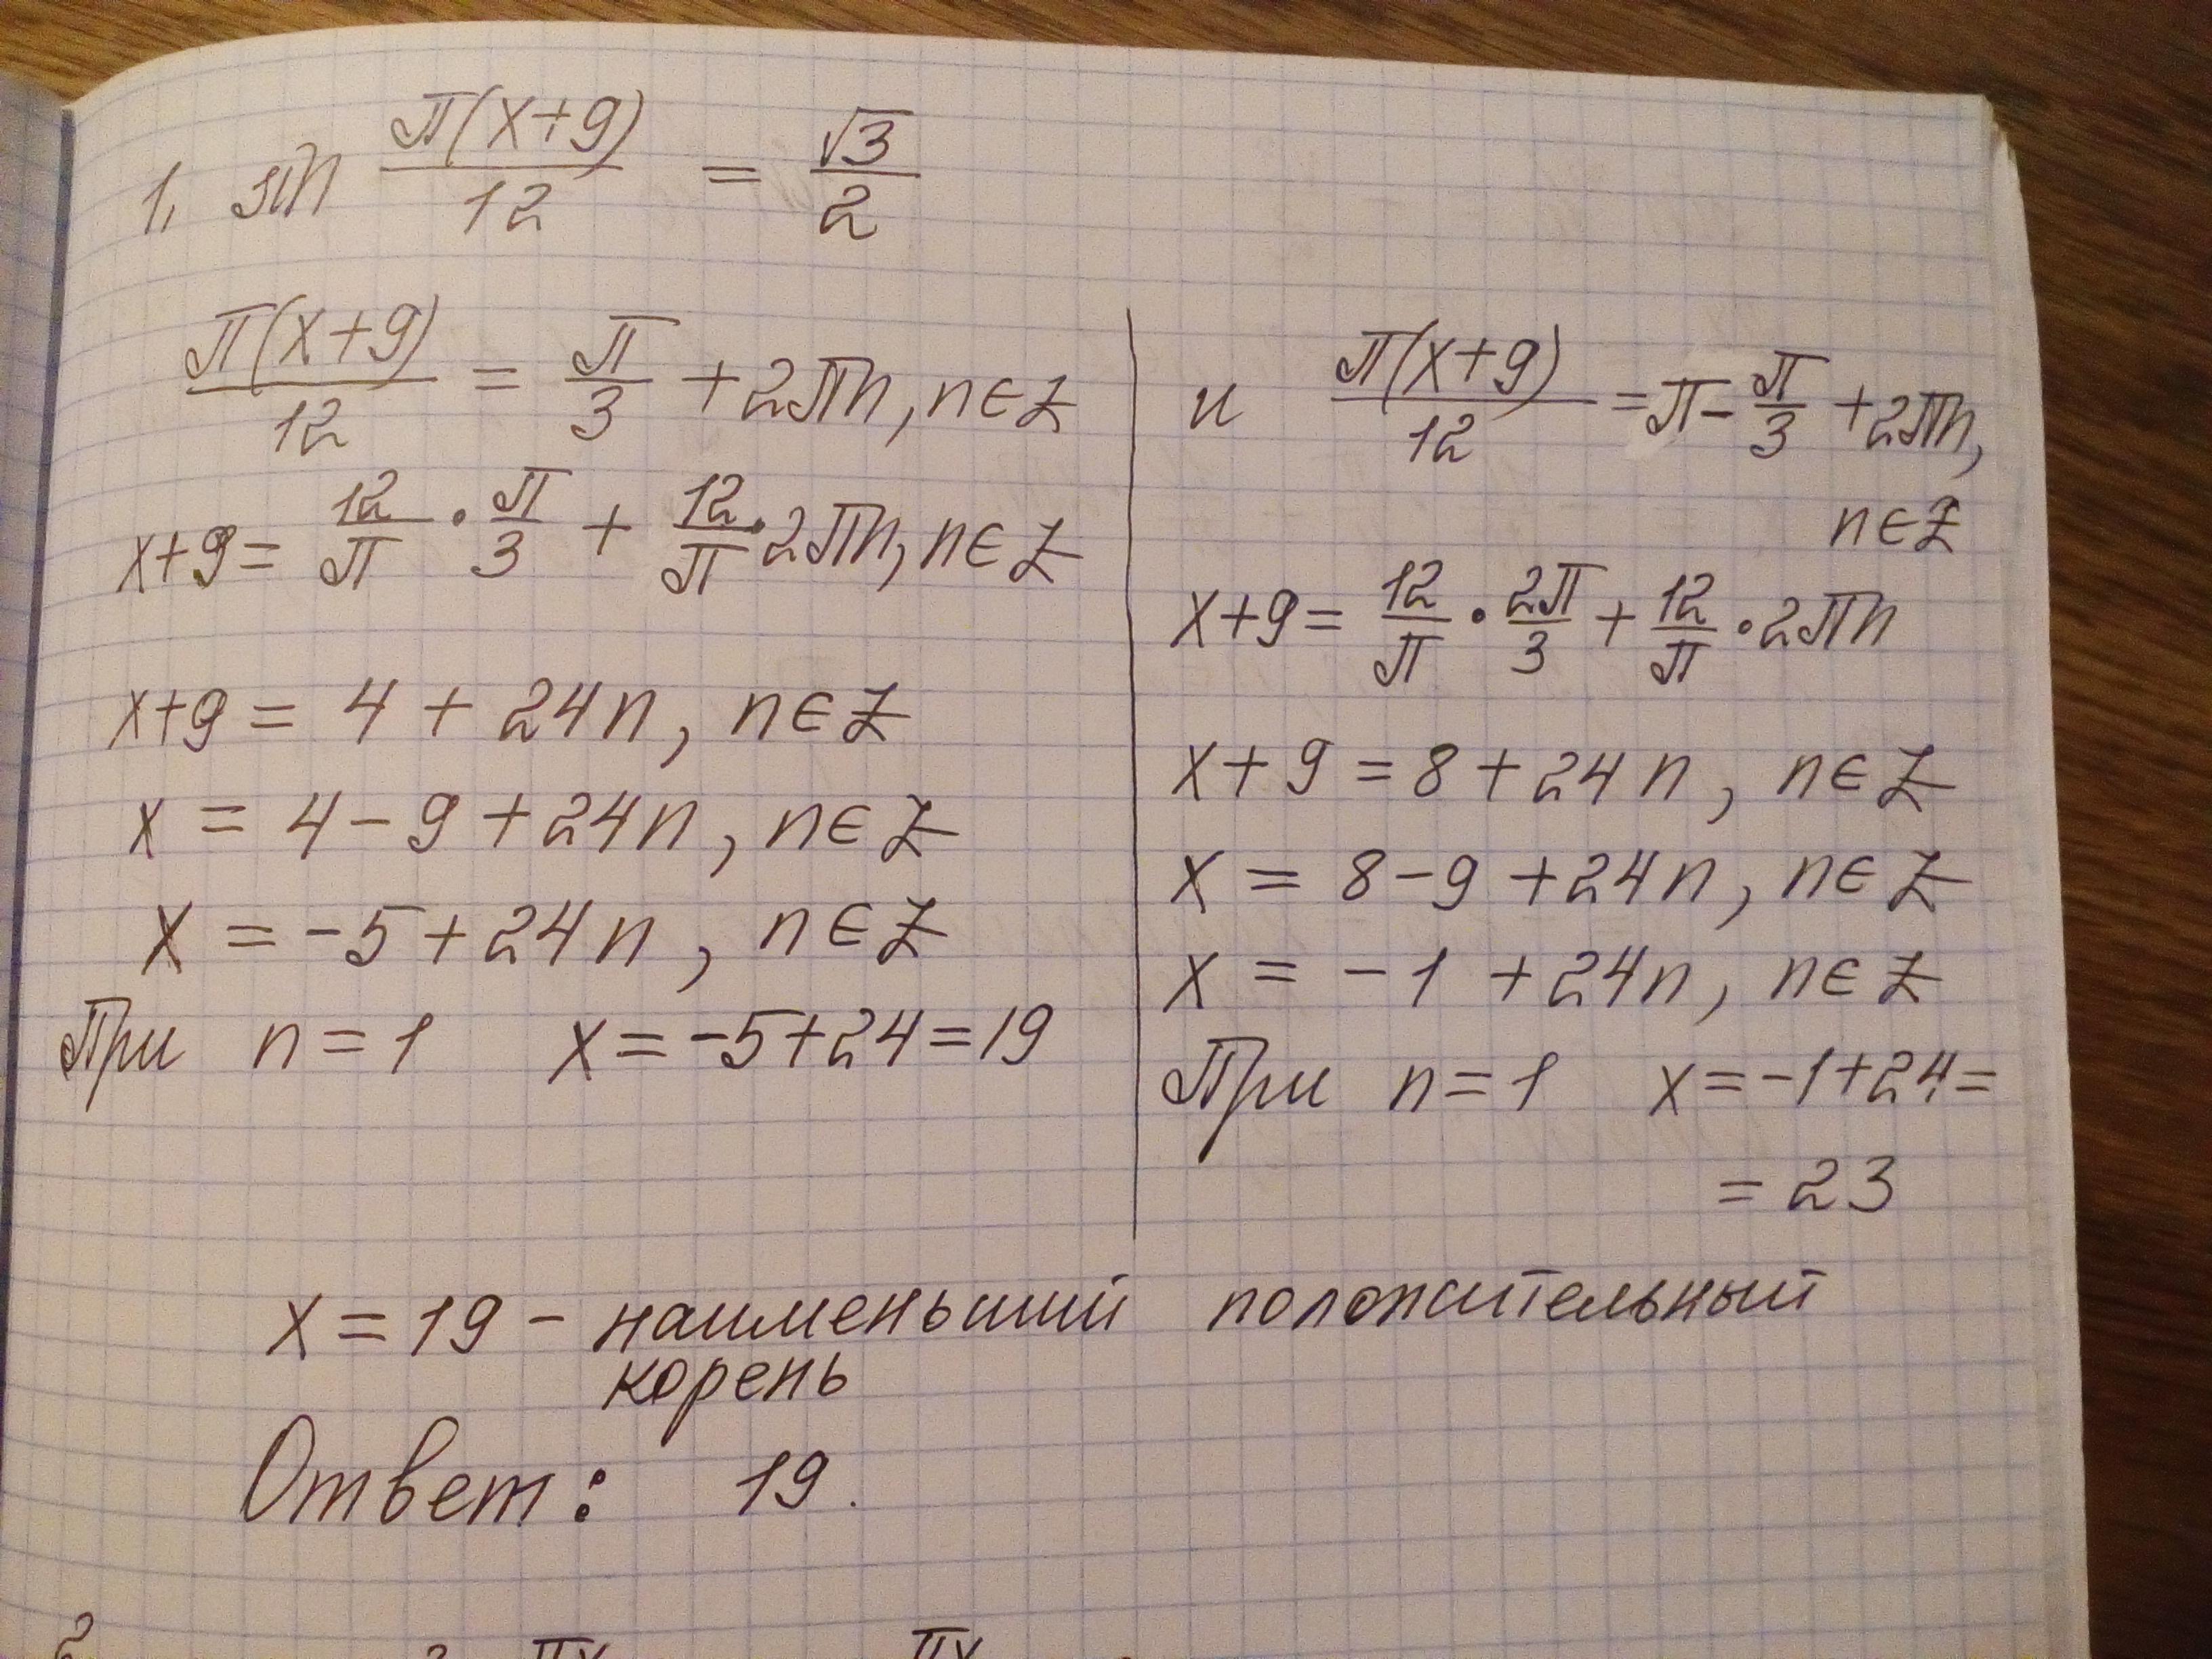 1, sin π(x+9)/12 = √3/2
π(x+9)/12 = π/3 + 2πn, n∈Z
x+9 = 12/π · π/3 + 12/π · 2πn, n∈Z
x+9 = 4 + 24n, n∈Z
x = 4 - 9 + 24n, n∈Z
x = -5 + 24n, n∈Z
При n = 1 x = -5+24 = 19
и π(x+9)/12 = π - π/3 + 2πn,
n∈Z
x+9 = 12/π · 2π/3 + 12/π · 2πn
x + 9 = 8 + 24n, n∈Z
x = 8 - 9 + 24n, n∈Z
x = - 1 + 24n, n∈Z
При n = 1 x = -1+24 =
= 23
x = 19 - наименьший положительный
корень
Ответ: 19.